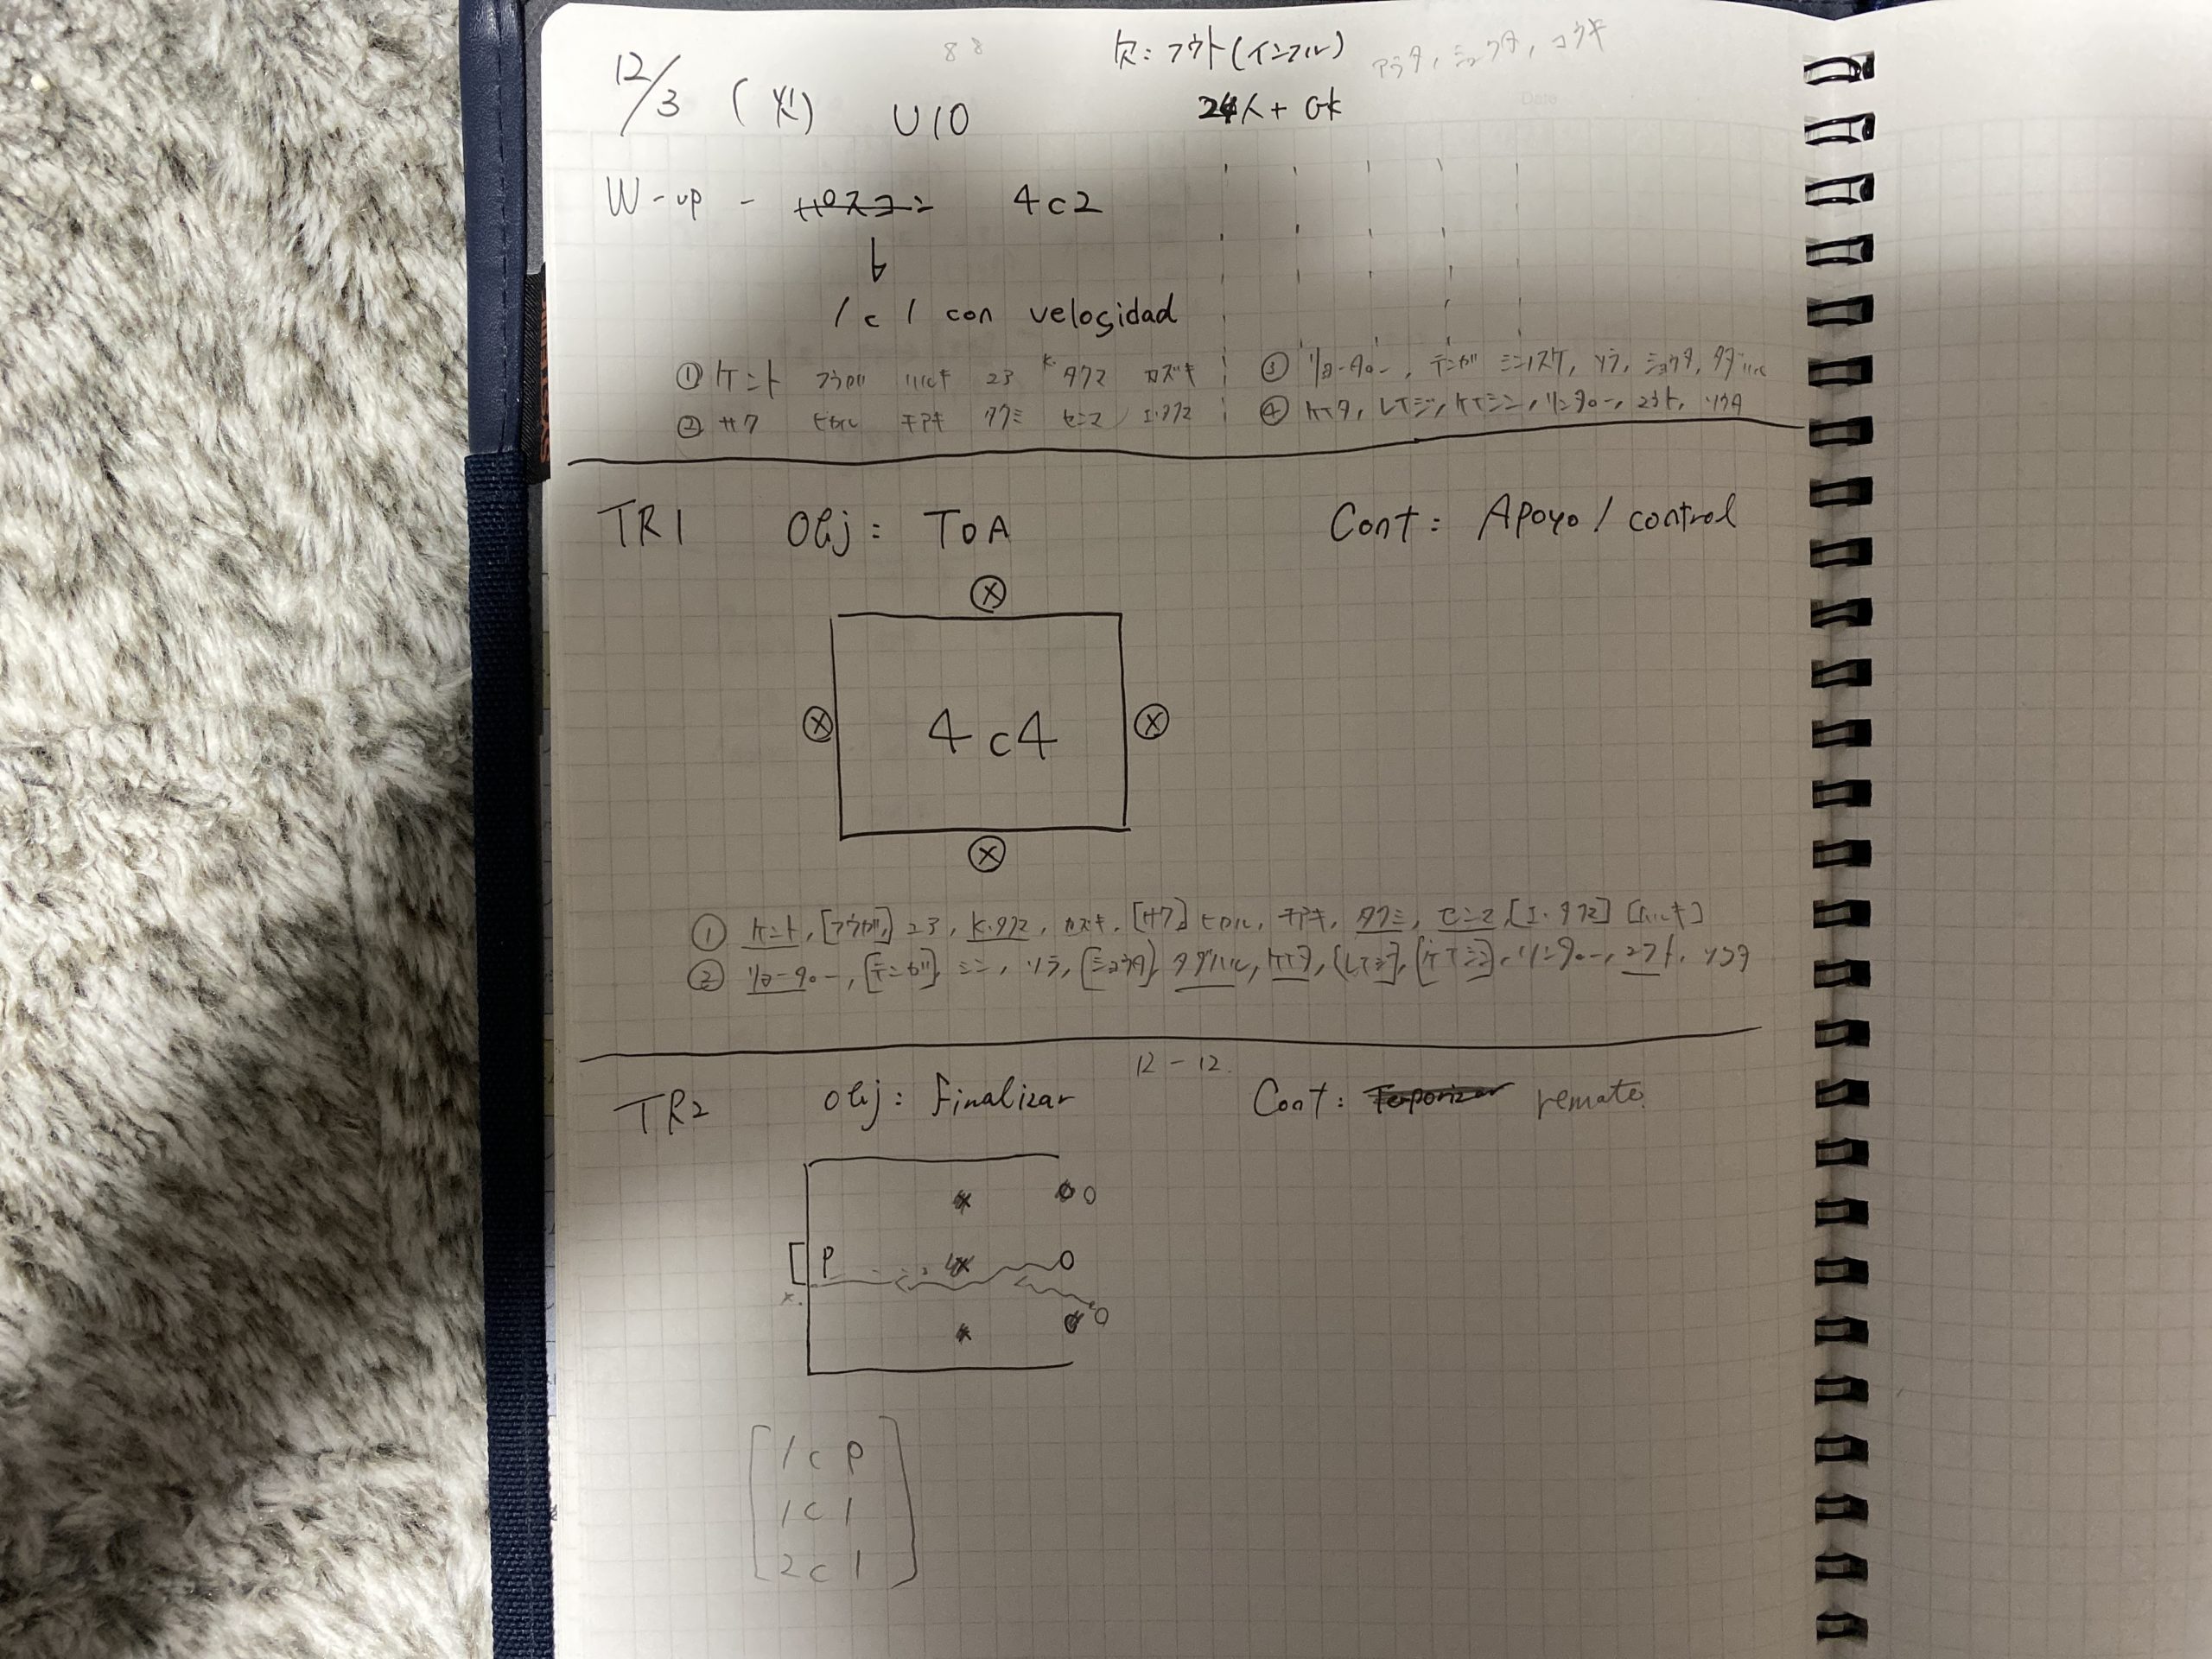 12/3 (火) U10
欠:フウト(インフル) アラタ, ショウタ, コウキ
24人+GK
W-up - パスコン 4c2
↓
1c1 con velosidad
① ケント フウガ ハルキ コア K.タクマ カズキ
② サク ヒカル チアキ タクミ センマ I.タクマ
③ リョータロー, テンガ シンノスケ, ソラ, ショウタ, タダハル
④ ケイタ, レイジ, ケイシン, リンタロー, ユウト, ソウタ
TR1 Obj: ToA Cont: Apoyo / control
4c4
① ケント, [フウガ], コア, K.タクマ, カズキ, [サク] ヒカル, チアキ, タクミ, センマ, [I.タクマ] [ハルキ]
② リョータロー, [テンガ], シン, ソラ, [ショウタ], タダハル, ケイタ, [レイジ], [ケイシン], リンタロー, ユウト, ソウタ
12-12
TR2 Obj: Finalizar Cont: remate.
P
1cP
1c1
2c1
SYSTEMIC